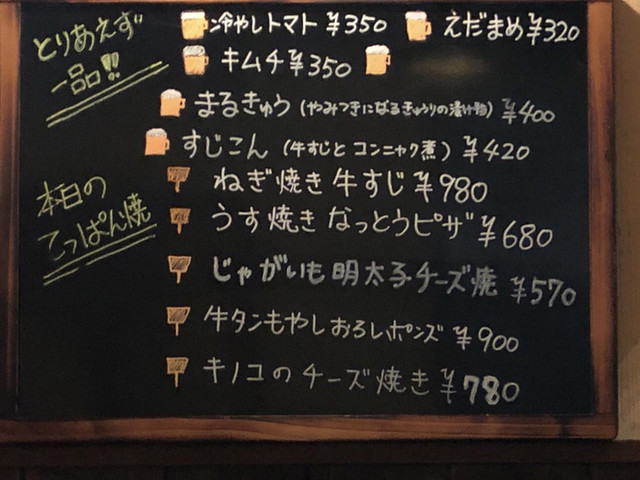 とりあえず
一品!!
冷やしトマト ¥350 えだまめ ¥320
キムチ ¥350
まるきゅう (やみつきになるきゅうりの漬け物) ¥400
すじこん (牛すじと コンニャク煮) ¥420
本日の
てっぱん焼
ねぎ焼き 牛すじ ¥980
うす焼き なっとうピザ ¥680
じゃがいも 明太子チーズ焼 ¥570
牛タンもやしおろしポンズ ¥900
キノコのチーズ焼き ¥780